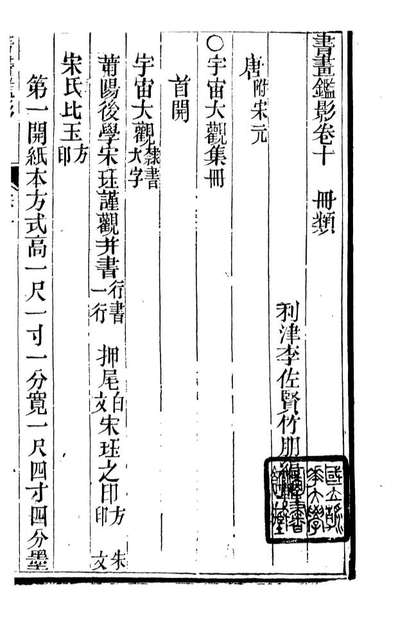 書畫鑑影卷十　冊類
利津李佐賢竹朋
唐附宋元
○宇宙大觀集冊
首開
宇宙大觀隸書大字
莆陽後學宋珏謹觀并書行書一行　押尾白文宋珏之印方印朱文
宋氏比玉方印
第一開紙本方式高一尺一寸一分寬一尺四寸四分墨